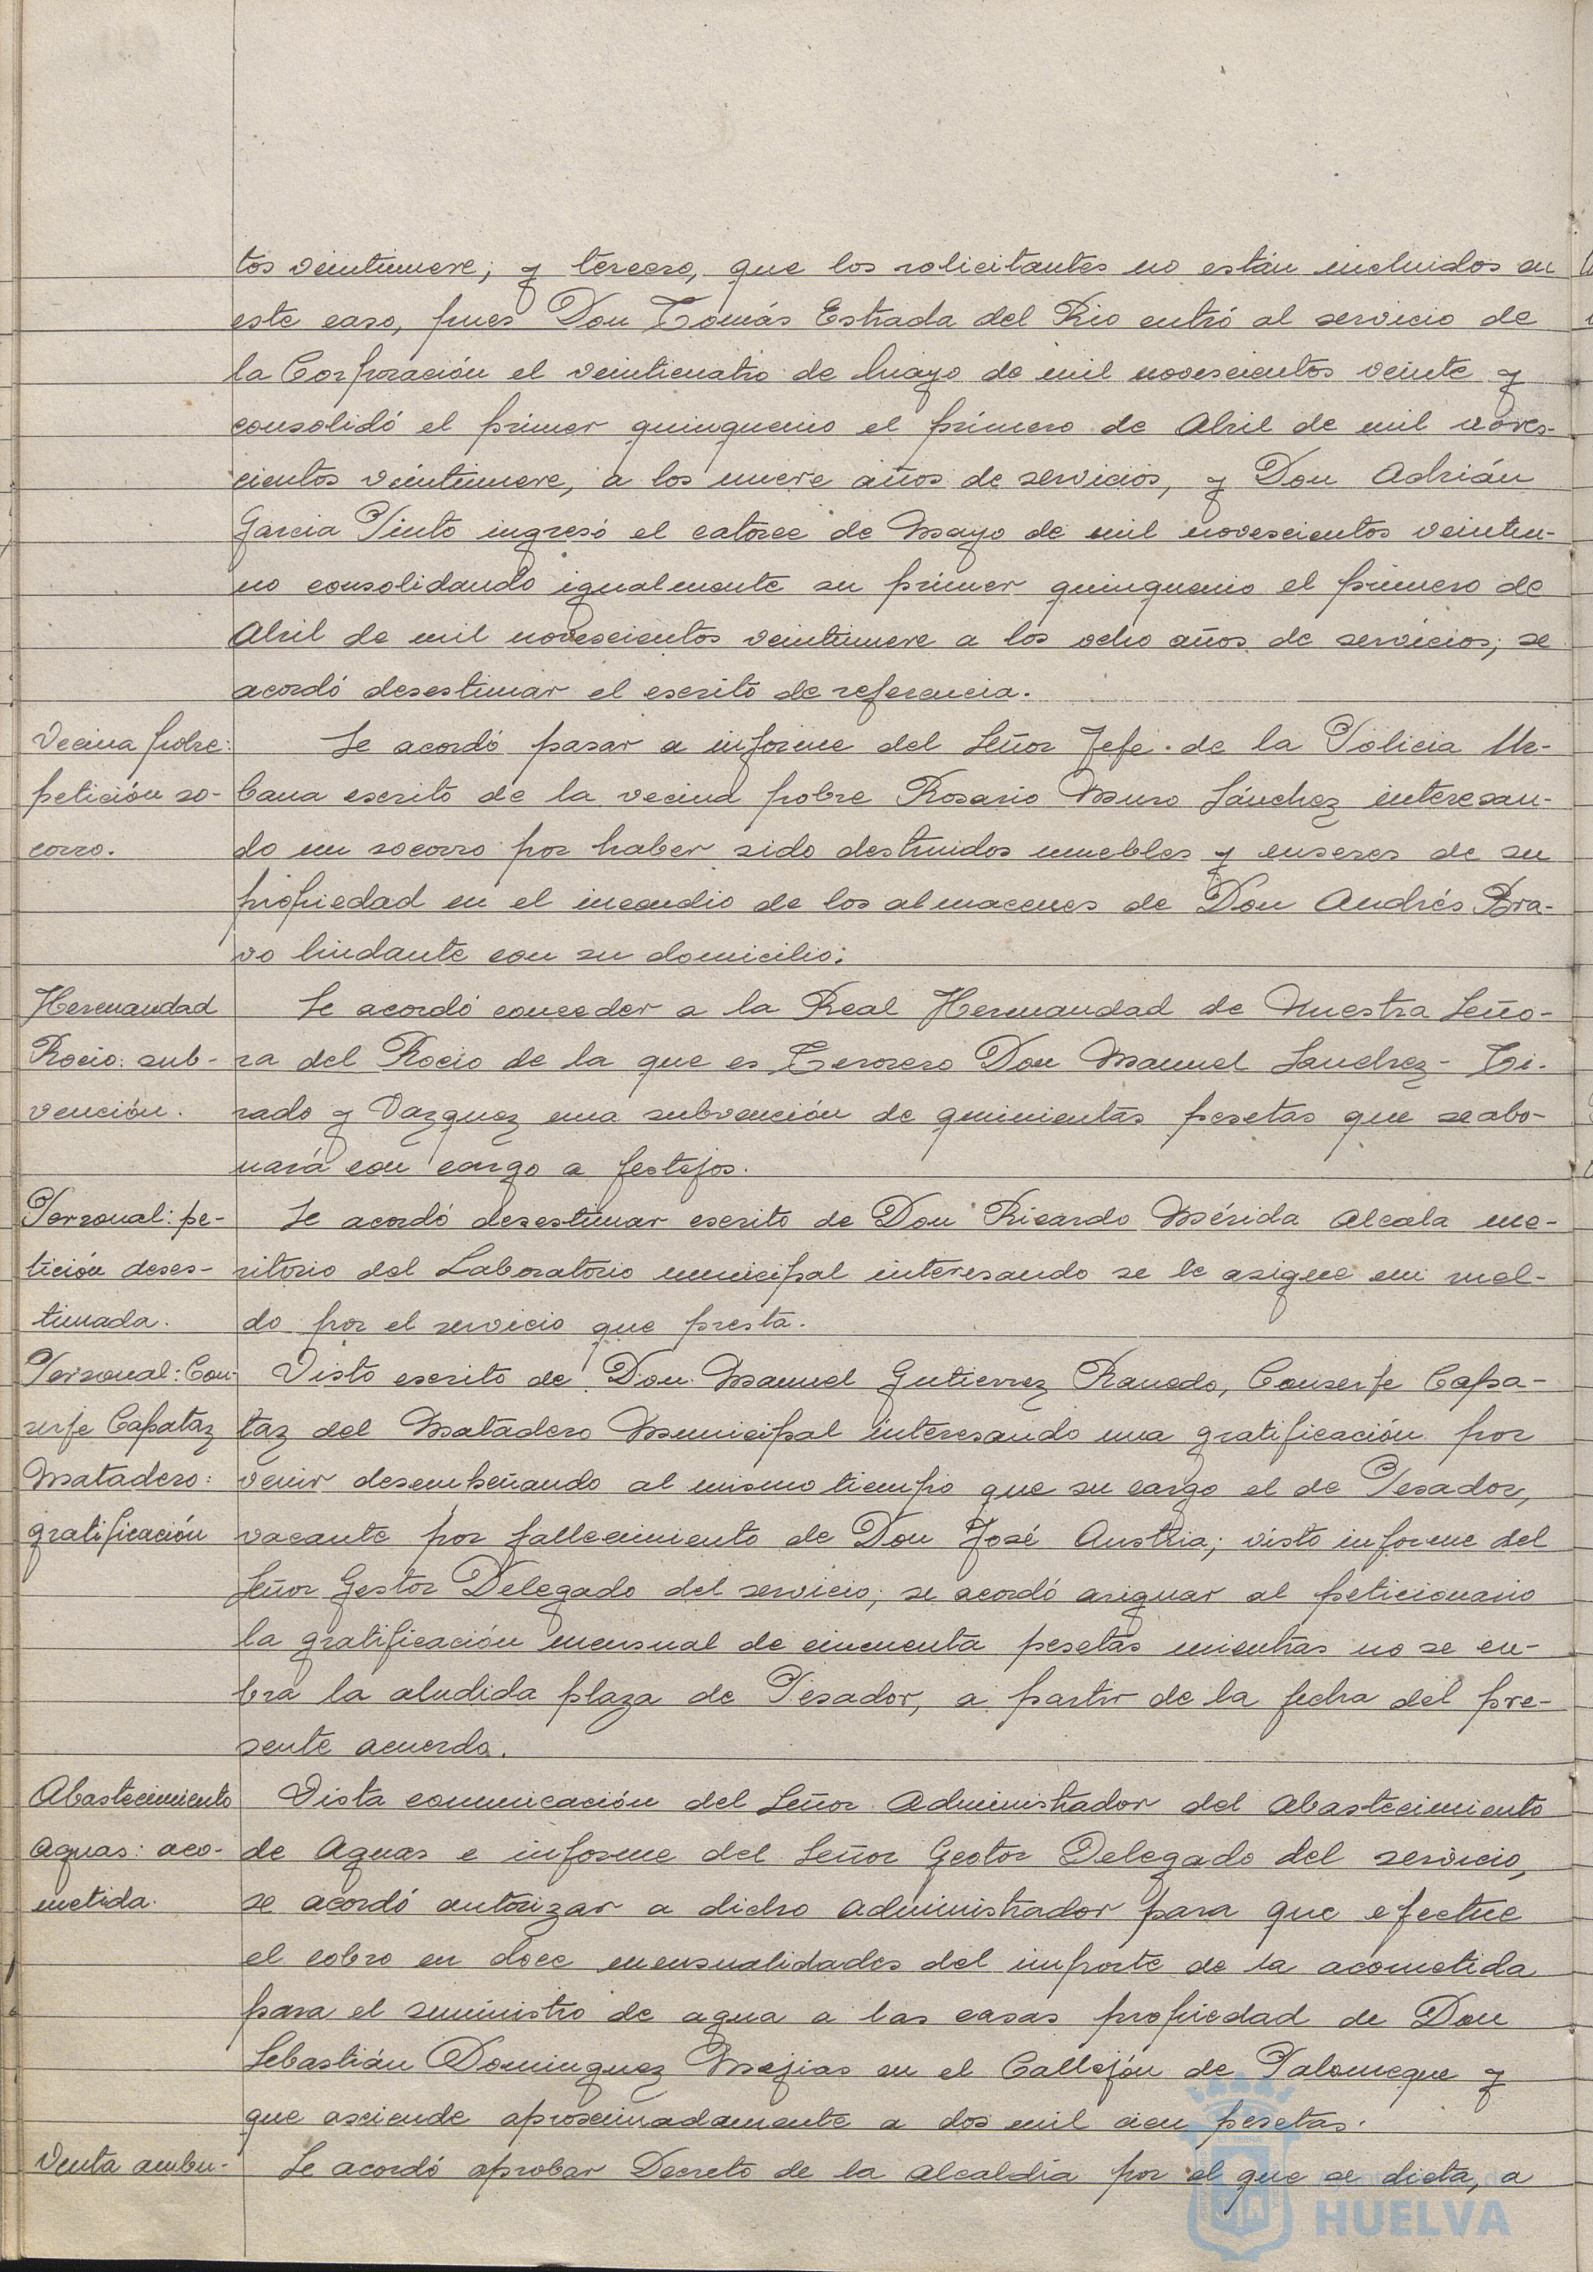 tos veintinueve; y tercero, que los solicitantes no están incluidos en
este caso, pues Don Tomás Estrada del Rio entró al servicio de
la Corporación el veinticuatro de Mayo de mil novescientos veinte y
consolidó el primer quinquenio el primero de Abril de mil noves-
cientos veintinueve, a los nueve años de servicios, y Don Adrián
Garcia Pinto ingresó el catorce de Mayo de mil novescientos veintiu-
no consolidando igualmente su primer quinquenio el primero de
Abril de mil novescientos veintinueve a los ocho años de servicios; se
acordó desestimar el escrito de referencia.
Vecina pobre:
petición so-
corro.
Se acordó pasar a informe del Señor Jefe de la Policia Ur-
bana escrito de la vecina pobre Rosario Muro Sánchez interesan-
do un socorro por haber sido destruidos muebles y enseres de su
propiedad en el incendio de los almacenes de Don Andrés Bra-
vo lindante con su domicilio.
Hermandad
Rocio: sub-
vención.
Se acordó conceder a la Real Hermandad de Nuestra Seño-
ra del Rocio de la que es Tesorero Don Manuel Sanchez-Ti-
rado y Vazquez una subvención de quinientas pesetas que se abo-
nará con cargo a festejos.
Personal: pe-
tición deses-
timada.
Se acordó desestimar escrito de Don Ricardo Mérida Alcala me-
ritorio del Laboratorio municipal interesando se le asigne un suel-
do por el servicio que presta.
Personal: Con-
serje Capataz
Matadero:
gratificación
Visto escrito de Don Manuel Gutierrez Ranedo, Conserje Capa-
taz del Matadero Municipal interesando una gratificación por
venir desempeñando al mismo tiempo que su cargo el de Pesador,
vacante por fallecimiento de Don José Austria; visto informe del
Señor Gestor Delegado del servicio; se acordó asignar al peticionario
la gratificación mensual de cincuenta pesetas mientras no se cu-
bra la aludida plaza de Pesador, a partir de la fecha del pre-
sente acuerdo.
Abastecimiento
aguas: aco-
metida.
Vista comunicación del Señor Administrador del Abastecimiento
de Aguas e informe del Señor Gestor Delegado del servicio,
se acordó autorizar a dicho Administrador para que efectue
el cobro en doce mensualidades del importe de la acometida
para el suministro de agua a las casas propiedad de Don
Sebastián Dominguez Mejias en el Callejón de Palomeque y
que asciende aproscimadamente a dos mil cien pesetas.
Venta ambu-
Se acordó aprobar Decreto de la Alcaldía por el que se dicta, a
HUELVA